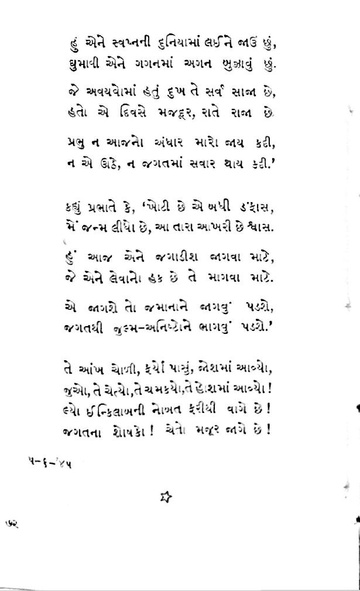 હું એને સ્વપ્નની દુનિયામાં લઈને જાઉં છું,
ઘુમાવી એને ગગનમાં અગન બુઝાવું છું.
જે અવયવોમાં હતું દુખ તે સર્વ સાજા છે,
હતો એ દિવસે મજદૂર, રાતે રાજા છે
પ્રભુ ન આજનો અંધાર મારો જાય કદી,
ન એ ઊઠે, ન જગતમાં સવાર થાય કદી.’
કહ્યું પ્રભાતે કે, ‘ખોટી છે એ બધી ડંફાસ,
મેં જન્મ લીધો છે, આ તારા આખરી છે શ્વાસ.
હું આજ એને જગાડીશ જાગવા માટે,
જે એને લેવાનો હક છે તે માગવા માટે.
એ જાગશે તો જમાનાને જાગવું પડશે,
જગતથી જુલ્મ-અનિષ્ટોને ભાગવું પડશે.’
તે આંખ ચોળી, ફર્યો પાસું, જોશમાં આવ્યો,
જુઓ, તે ચેત્યો, તે ચમક્યો, તે હોશમાં આવ્યો!
લ્યો ઈન્કિલાબની નોબત ફરીથી વાગે છે!
જગતના શોષકો! ચેતો મજૂર જાગે છે!
૫-૬-’૪૫
૭૨